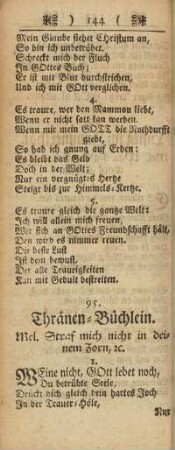 144
Mein Glaube siehet Christum an,
So bin ich unbetrübet.
Schreckt mich der Fluch
In GOttes Buch;
Er ist mit Blut durchstrichen,
Und ich mit GOtt verglichen.
4.
Es traure, wer den Mammon liebt,
Wenn er nicht satt kan werden.
Wenn mir mein GOTT die Nothdurfft
giebt,
So hab ich gnung auf Erden:
Es bleibt das Geld
Doch in der Welt;
Nur ein vergnügtes Hertze
Steigt bis zur Himmels-Kertze.
5.
Es traure gleich die gantze Welt:
Ich will allein mich freuen,
Wer sich an GOttes Freundschafft hält,
Den wird es nimmer reuen.
Die beste Lust
Ist dem bewust,
Der alle Traurigkeiten
Kan mit Geduld bestreiten.
95.
Thränen-Büchlein.
Mel. Straf mich nicht in dei-
nem Zorn, ꝛc.
1.
WEine nicht, GOtt lebet noch,
Du betrübte Seele,
Drückt dich gleich dein hartes Joch
In der Trauer-Höle,
Nur